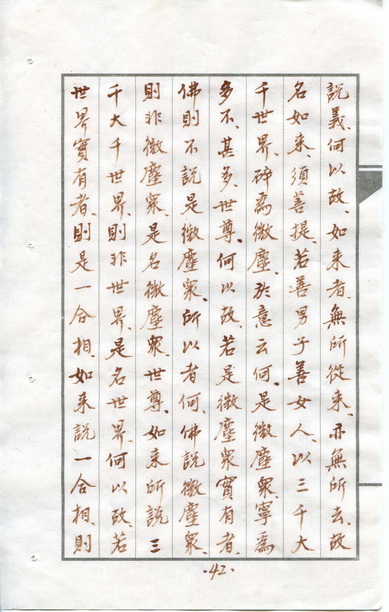 說義、何以故、如来者、無所從来、亦無所去、故
名如来、須菩提、若善男子善女人、以三千大
千世界、碎為微塵、於意云何、是微塵衆、寧為
多不、甚多、世尊、何以故、若是微塵衆實有者、
佛則不說是微塵衆、所以者何、佛說微塵衆、
則非微塵衆、是名微塵衆、世尊、如来所說三
千大千世界、則非世界、是名世界、何以故、若
世界實有者、則是一合相、如来說一合相、則
·42·